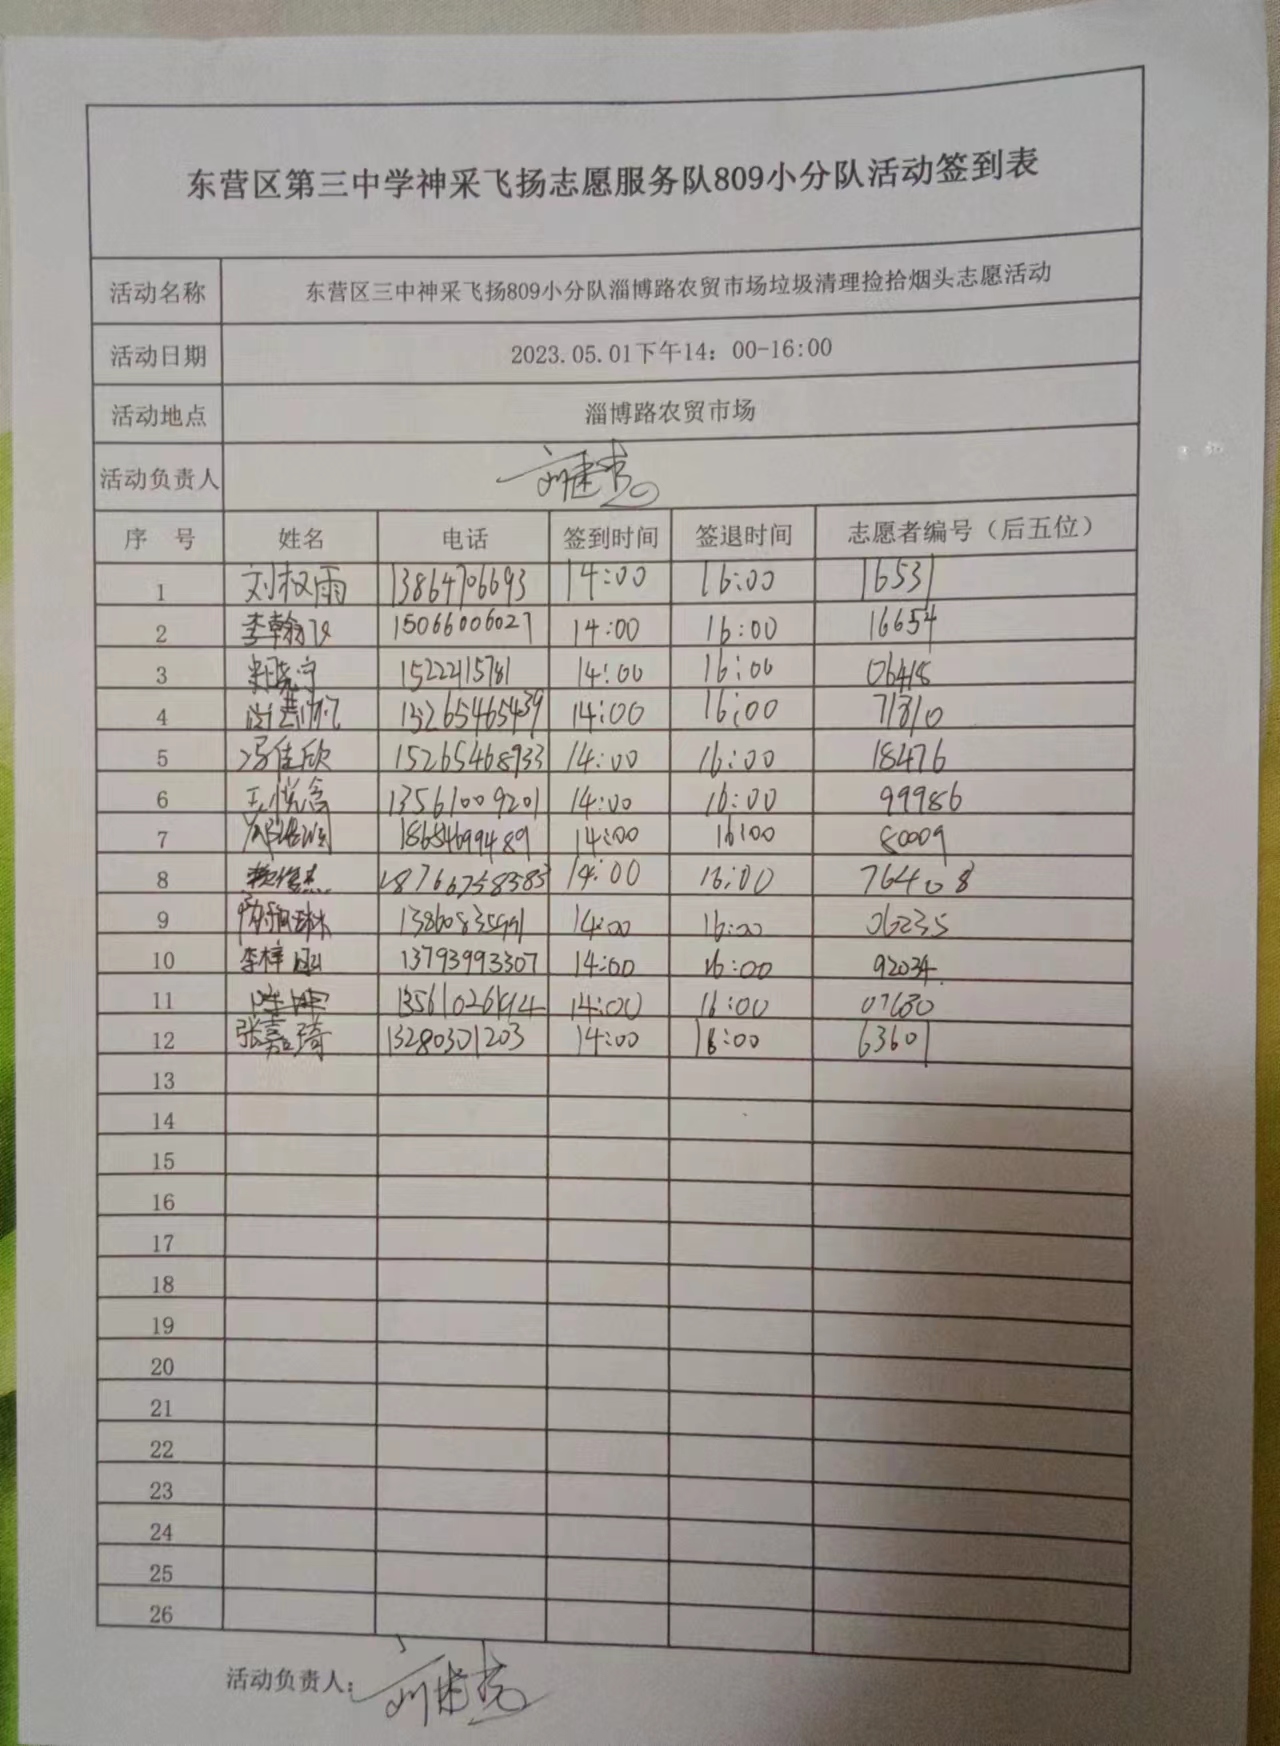 东营区第三中学神采飞扬志愿服务队809小分队活动签到表
活动名称 东营区三中神采飞扬809小分队淄博路农贸市场垃圾清理捡拾烟头志愿活动
活动日期 2023.05.01下午14：00-16:00
活动地点 淄博路农贸市场
活动负责人
序 号 姓名 电话 签到时间 签退时间 志愿者编号（后五位）
1 刘权雨 13864706693 14:00 16:00 16531
2 李翰飞 15066006027 14:00 16:00 16654
3 晓宁 15222115781 14:00 16:00 06418
4 15265465439 14:00 16:00 71810
5 冯佳欣 15265468933 14:00 16:00 18476
6 王悦含 13561009201 14:00 16:00 99986
7 18654699489 14:00 16:00 80009
8 18766758585 14:00 16:00 76408
9 14:00 16:00 06235
10 李梓 13793993307 14:00 16:00 92034
11 14:00 16:00
12 张嘉琦 13280301203 14:00 16:00 63601
13
14
15
16
17
18
19
20
21
22
23
24
25
26
活动负责人：